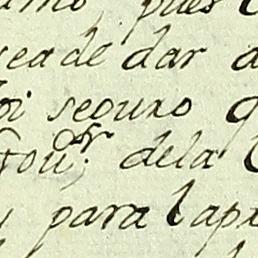 pues
eade dar a
oi seguro q
Gou.r dela
para lap